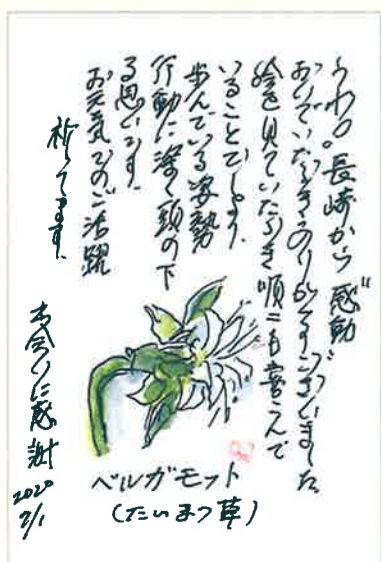 うわぁ。長崎から"感動"
おいでいただきありがとうございました
絵を見ていただき順二も喜こんで
いることでしょう。
歩んでいる姿勢
行動に深く頭の下
る思いです。
お元気でのご活躍
祈ってます。
お会いに感謝
2020
2/1
ベルガモット
(たいまつ草)